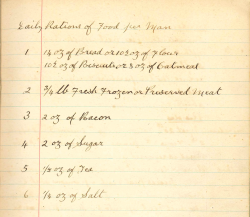 Daily Rations of Food per Man
1 14 oz of Bread or 10½ oz of Flour
10½ oz of Biscuits or 8 oz of Oatmeal
2 ¾ lb Fresh Frozen or Preserved Meat
3 2 oz of Bacon
4 2 oz of Sugar
5 ½ oz of Tea
6 ¼ oz of Salt